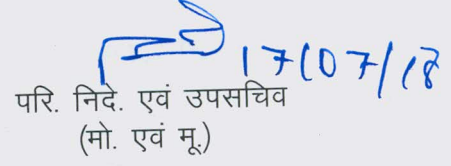 17/07/18
परि. निदे. एवं उपसचिव
(मो. एवं मू.)